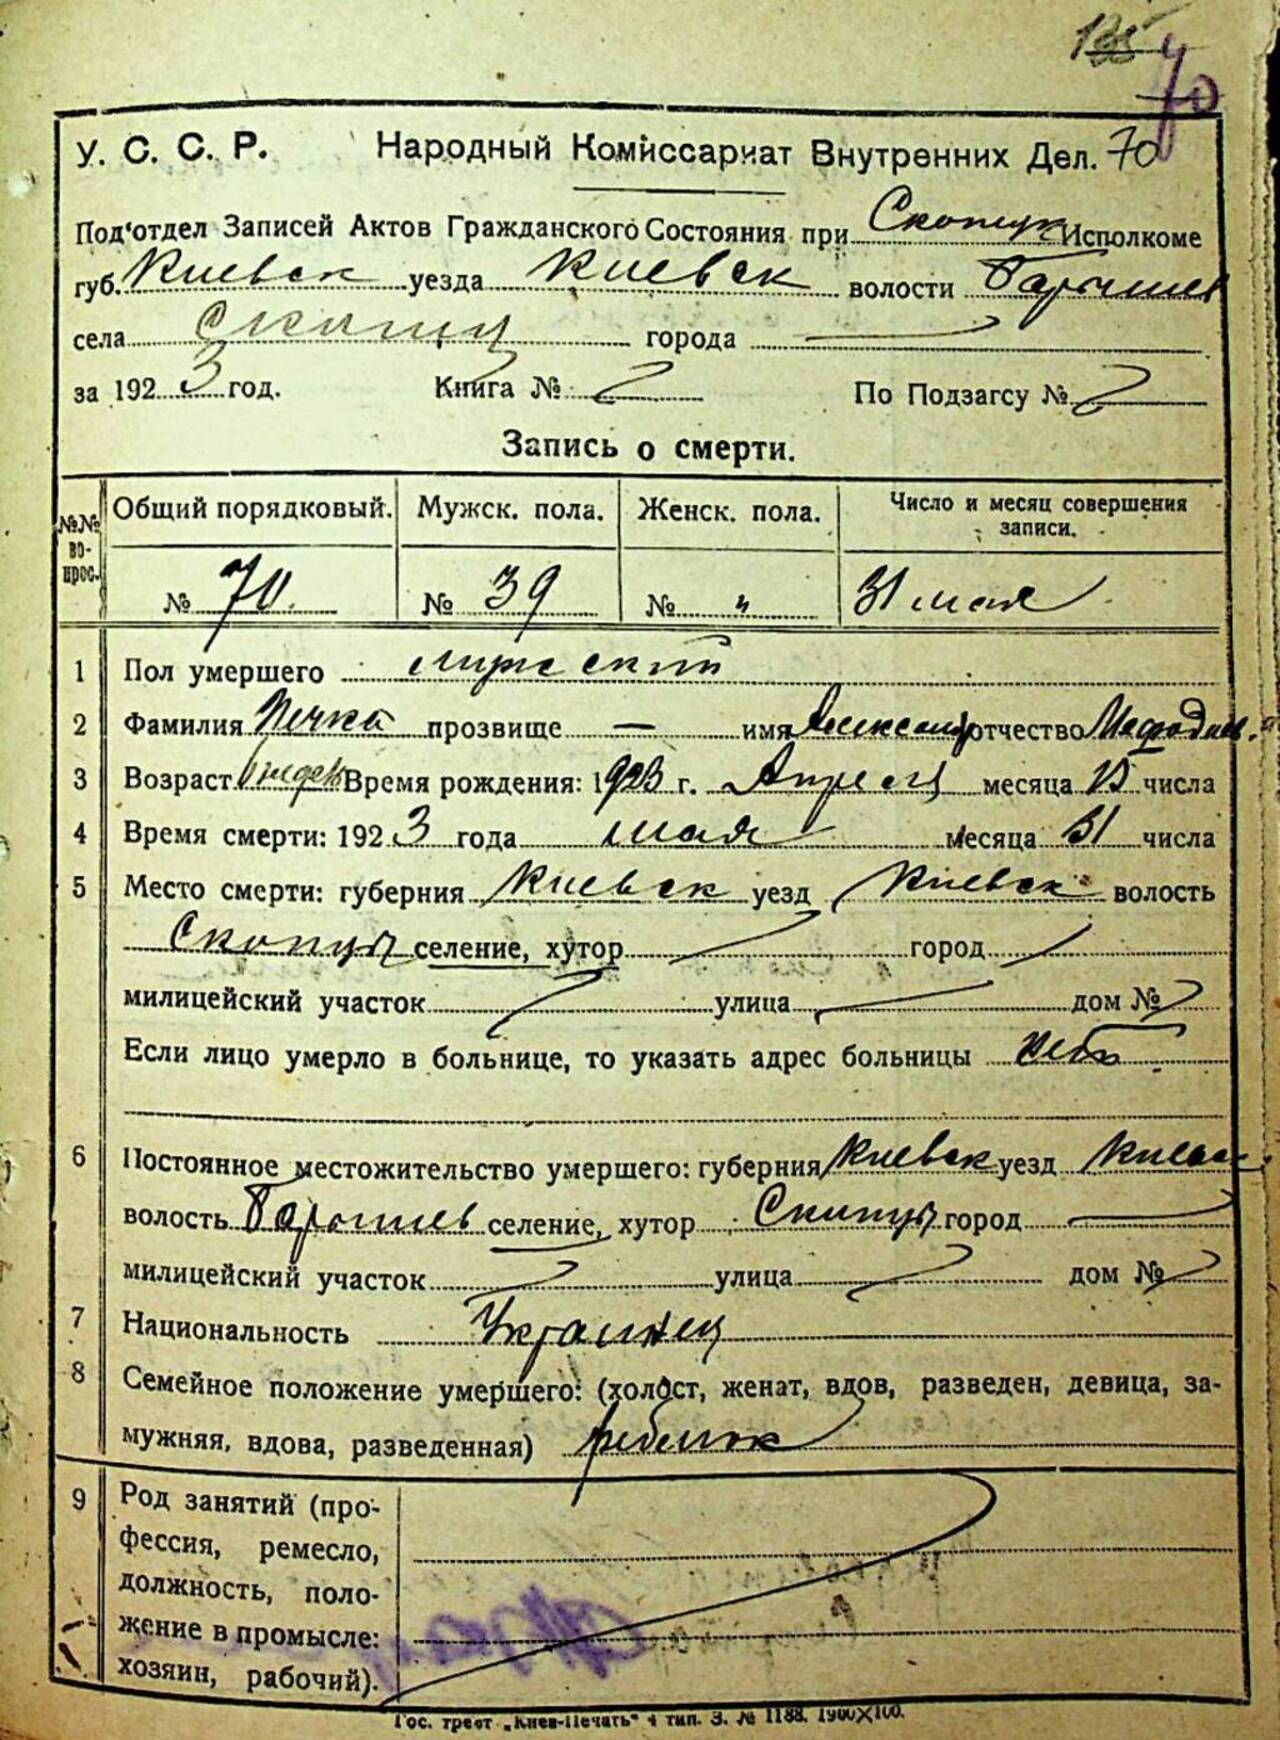 70
У. С. С. Р. Народный Комиссариат Внутренних Дел. 70
Под'отдел Записей Актов Гражданского Состояния при Скопецк Исполкоме
губ. Киевск уезда Киевск волости Барышев
села Скопцы города
за 1923 год. Книга № По Подзагсу №
Запись о смерти.
№№ во- прос. Общий порядковый. Мужск. пола. Женск. пола. Число и месяц совершения записи.
№ 70. № 39 № " 31 мая
1 Пол умершего мужской
2 Фамилия Печка прозвище — имя Александр отчество Мефодиев.
3 Возраст Время рождения: 1923 г. Апреля месяца 15 числа
4 Время смерти: 1923 года мая месяца 31 числа
5 Место смерти: губерния Киевск уезд Киевск волость
Скопцы селение, хутор город
милицейский участок улица дом №
Если лицо умерло в больнице, то указать адрес больницы
6 Постоянное местожительство умершего: губерния Киевск уезд Киевск
волость Барышев селение, хутор Скопцы город
милицейский участок улица дом №
7 Национальность Украинец
8 Семейное положение умершего: (холост, женат, вдов, разведен, девица, за-
мужняя, вдова, разведенная) ребенок
9 Род занятий (про-
фессия, ремесло,
должность, поло-
жение в промысле:
хозяин, рабочий).
Гос. трест „Киев-Печать" 4 тип. З. № 1188. 1900X100.